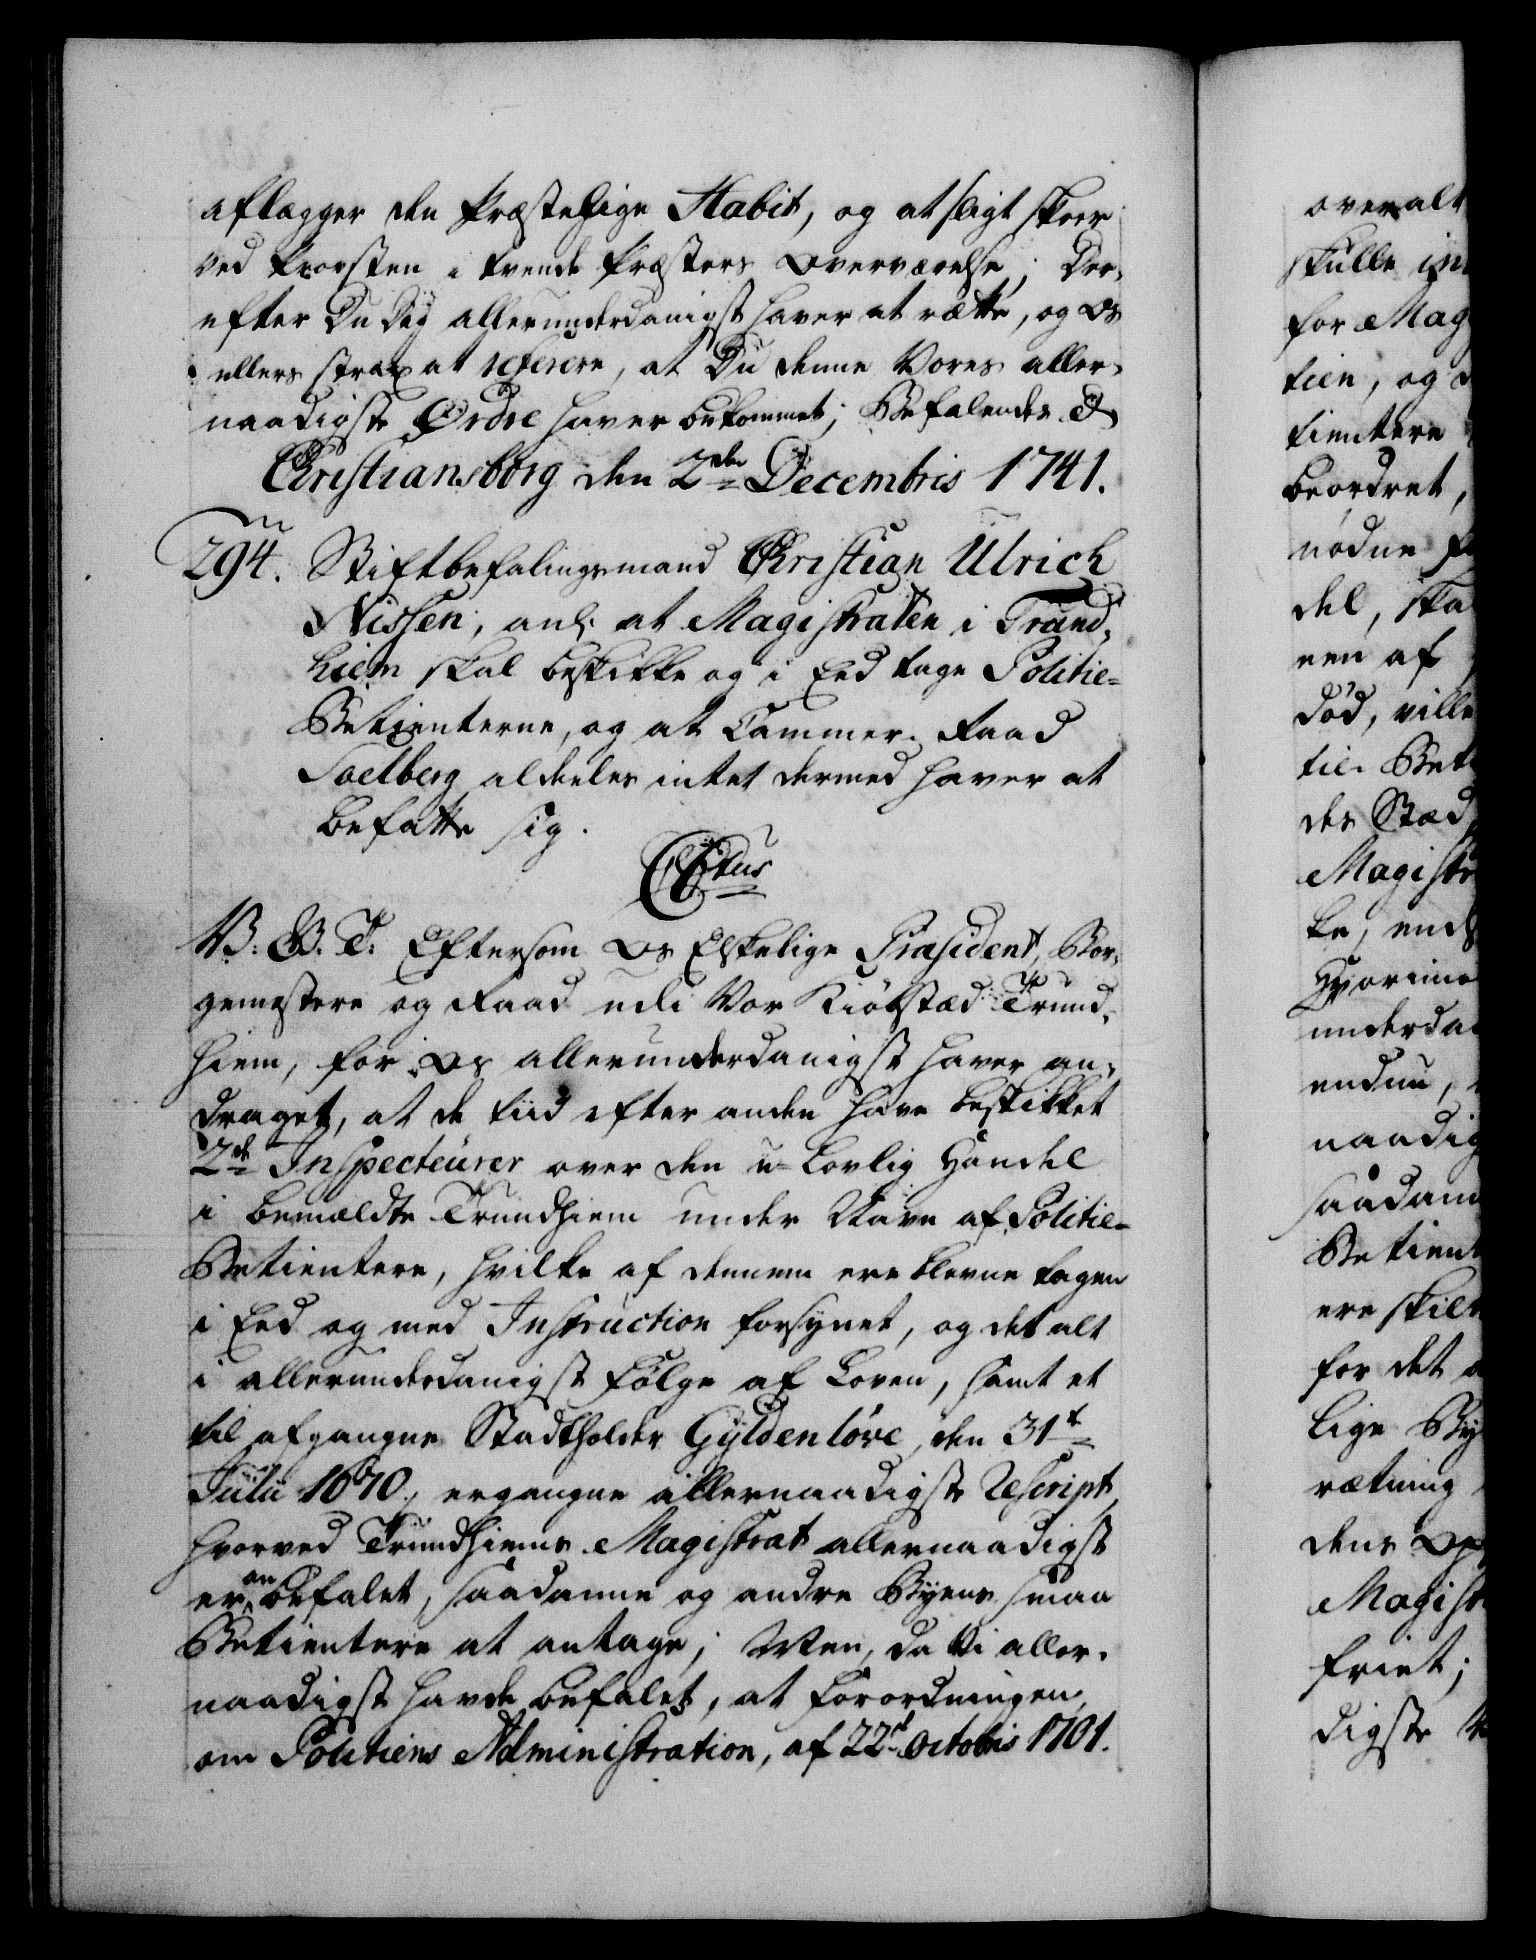 aflægger den Præstelige Habit, og at sligt skeer
ved Provsten i tvende Præsters Overværelse; Der-
efter Du Dig allerunderdanigst haver at rætte, og Os
ellers strax at referere, at Du denne Vores aller-
naadigste Ordre haver bekommet; Befalendes &
Christiansborg den 2den Decembris 1741.
294. Stiftbefalingsmand Christian Ulrich
Nissen, anl. at Magistraten i Trund-
hiem skal beskikke og i Eed tage Politie-
Betienterne, og at Cammer-Raad
Soelberg aldeeles intet dermed haver at
befatte sig.
C 6tus
V. G. T. Eftersom Os Elskelige Præsident, Bor-
gemestere og Raad udi Vor Kiøbstæd Trund-
hiem, for Os allerunderdanigst haver an-
draget, at de tiid efter anden have beskikket
2de Inspecteurer over den u-lovlig Handel
i bemældte Trundhiem under Navn af Politie-
Betientere, hvilke af dennem ere blevne tagen
i Eed og med Instruction forsynet, og det alt
i allerunderdanigst følge af Loven, samt et
til afgangne Stadtholder Gyldenløve, den 31te
Julii 1670, ergangne allernaadigste Rescript,
hvorved Trundhiems Magistrat allernaadigst
er anbefalet, saadanne og andre Byens smaa
Betientere at antage; Men, da Vi aller-
naadigst havde befalet, at Forordningen,
om Politiens Administration, af 22de Octobris 1701.
overalt
skulle in
for Mag
tien, og
tientere
beordret,
nødne
del, ska
een af
død, ville
til Bet
des Stæd
Magistr
ke, end
Hvorime
underda
endnu,
naadig
saadan
Betient
ere skil
for det
lige By
rætning
dens Op
Magist
friet;
digste